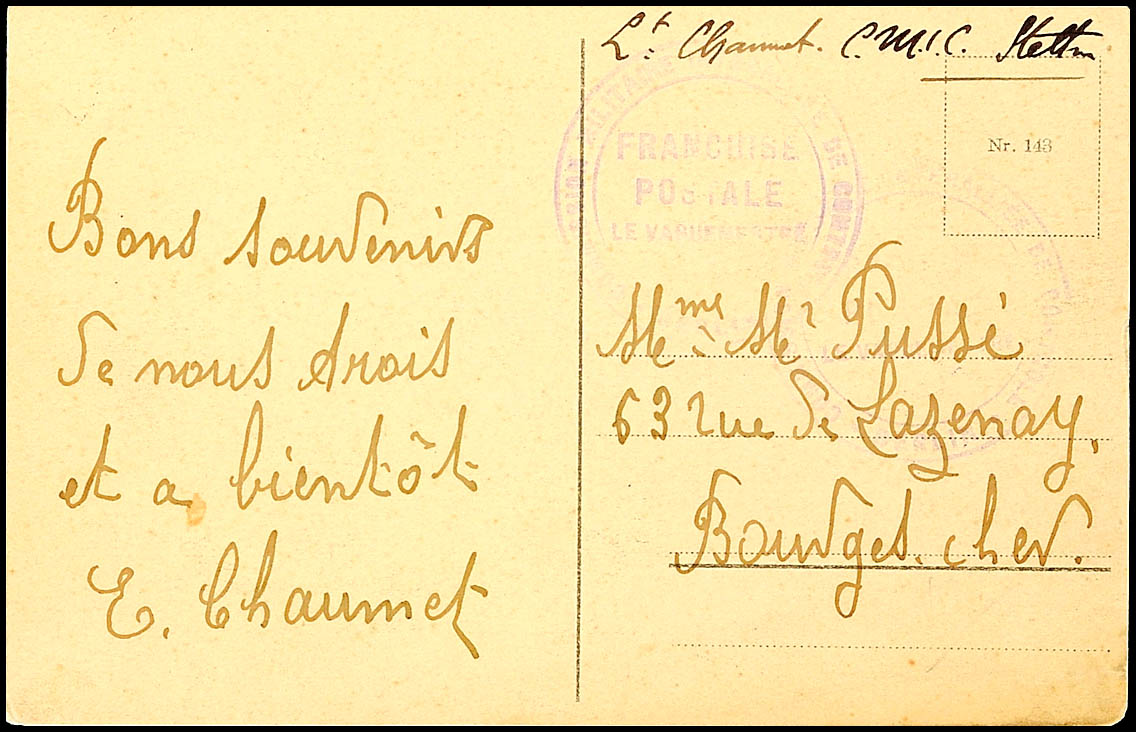 Lt. Chaumet. C.M.I.C. Stettin
FRANCHISE
POSTALE
LE VAGUEMESTRE
Nr. 143
Bons souvenirs
de nous trois
et a bientôt
E. Chaumet
Mme & Mr Pussé
63 rue de Lazenay,
Bourges. Cher.